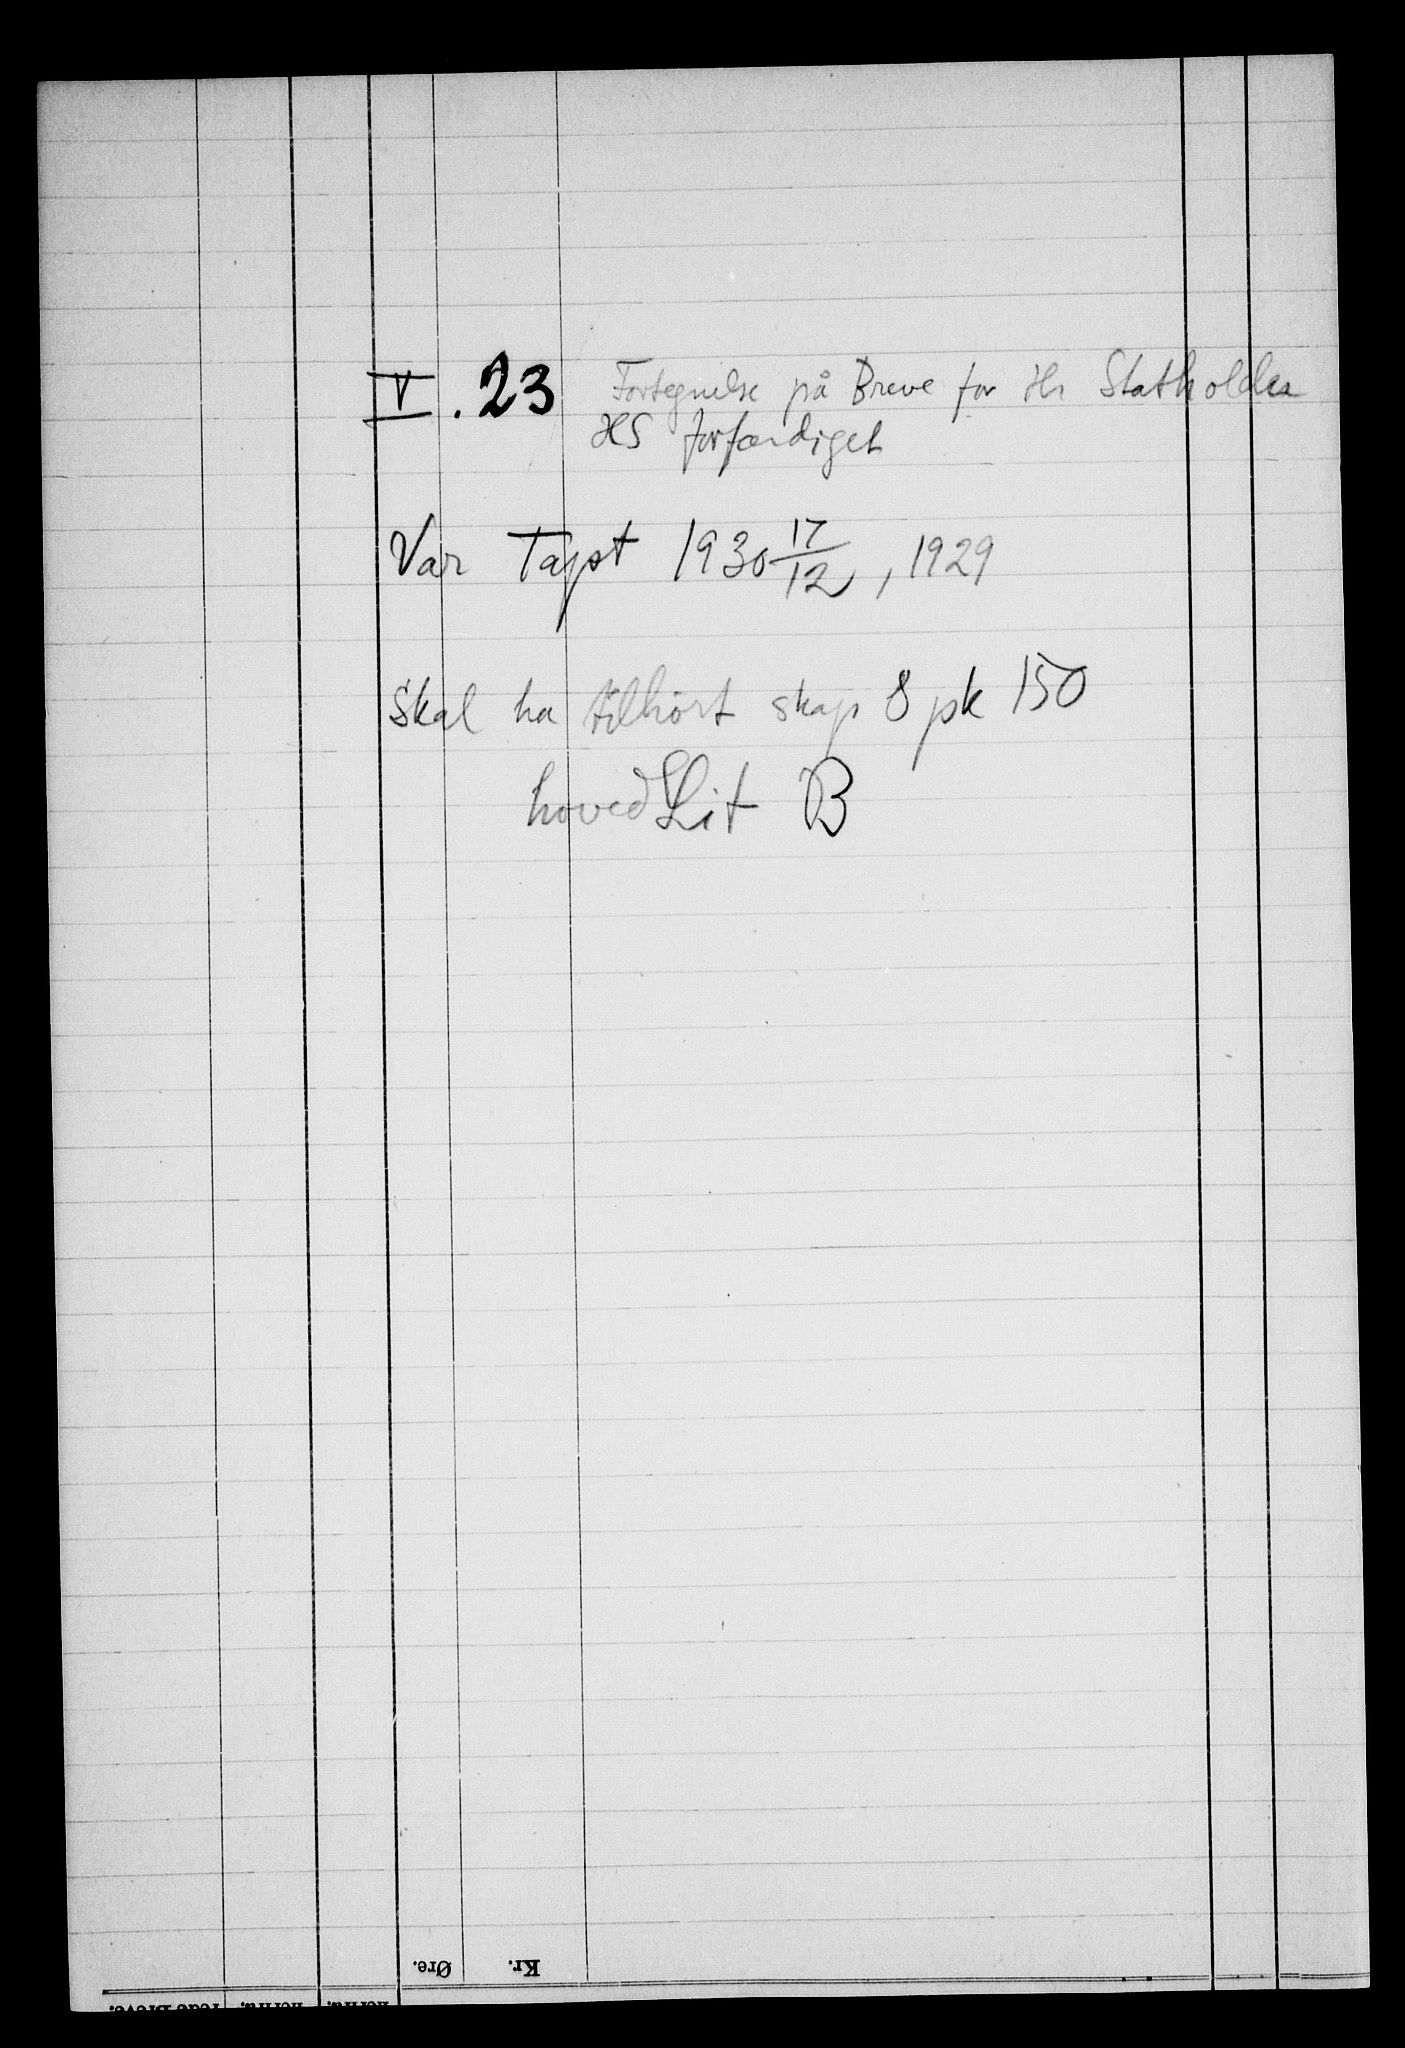 V. 23 Fortegnelse på Breve for Hr Statholder
HS forfærdiget
Var Tapt 1930 17/12, 1929
Skal ha tilhørt skap 8 pk 150
hoved Lit B
Kr. Øre.